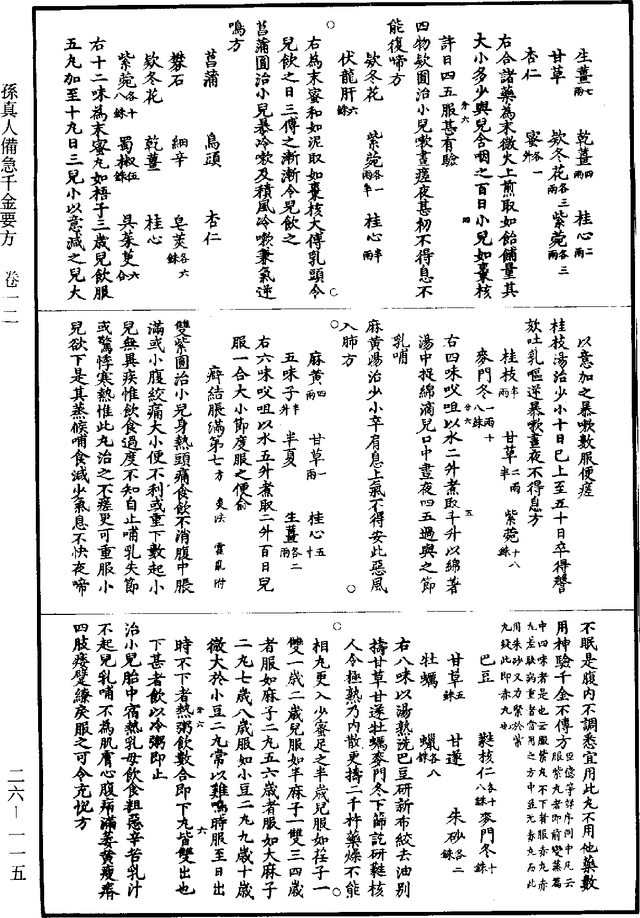 孫真人備急千金要方　卷一二
生薑七兩　乾薑四兩　桂心二兩
甘草　欵冬花各三兩　紫菀各三兩
杏仁　蜜各一升
右合諸藥為末微火上煎取如飴餔量其
大小多少與兒含咽之百日小兒如棗核
許日四五服甚有驗
四物欵圓治小兒嗽晝瘥夜甚初不得息不
能復啼方
欵冬花　紫菀各一兩半　桂心半兩
伏龍肝六銖
右為末蜜和如泥取如棗核大傅乳頭令
兒飲之日三傅之漸漸令兒飲之
菖蒲圓治小兒暴冷嗽及積風冷嗽兼氣逆
鳴方
菖蒲　烏頭　杏仁
礬石　細辛　皂莢各六銖
欵冬花　乾薑　桂心
紫菀各十八銖　蜀椒伍銖　吳茱萸六合
右十二味為末蜜丸如梧子三歲兒飲服
五丸加至十丸日三兒小以意減之兒大
以意加之暴嗽數服便瘥
桂枝湯治少小十日已上至五十日卒得謦
欬吐乳嘔逆暴嗽晝夜不得息方
桂枝半兩　甘草二兩半　紫菀十八銖
麥門冬一兩十八銖
右四味㕮咀以水二升煮取半升以綿著
湯中捉綿滴兒口中晝夜四五過與之節
乳哺
麻黃湯治少小卒肩息上氣不得安此惡風
入肺方
麻黃四兩　甘草一兩　桂心五寸
五味子半升　半夏　生薑各二兩
右六味㕮咀以水五升煮取二升百日兒
服一合大小節度服之便愈
癖結脹滿第七方　灸法
雙紫圓治小兒身熱頭痛食飲不消腹中脹
滿或小腹絞痛大小便不利或重下數起小
兒無異疾惟飲食過度不知自止哺乳失節
或驚悸寒熱惟此丸治之不瘥更可重服小
兒欲下是其蒸候哺食減少氣息不快夜啼
不眠是腹內不調悉宜用此丸不用他藥數
用神驗千金不傳方
巴豆　蕤核仁各十八銖　麥門冬十銖
甘草五銖　甘遂　朱砂各二銖
牡蠣　蠟各八銖
右八味以湯熟洗巴豆研新布絞去油別
擣甘草甘遂牡蠣麥門冬下篩訖研蕤核
人令極熟乃內散更擣二千杵藥燥不能
相丸更入少蜜足之半歲兒服如荏子一
雙一歲二歲兒服如半麻子一雙三四歲
者服如麻子二丸五六歲者服如大麻子
二丸七歲八歲服如小豆二丸九歲十歲
微大於小豆二丸常以雞鳴時服至日出
時不下者熱粥飲數合即下丸皆雙出也
下甚者飲以冷粥即止
治小兒胎中宿熱乳母飲食粗惡辛苦乳汁
不起兒乳哺不為肌膚心腹痞滿萎黃瘦瘠
四肢痿躄繚戾服之可令充悅方
二六—一一五